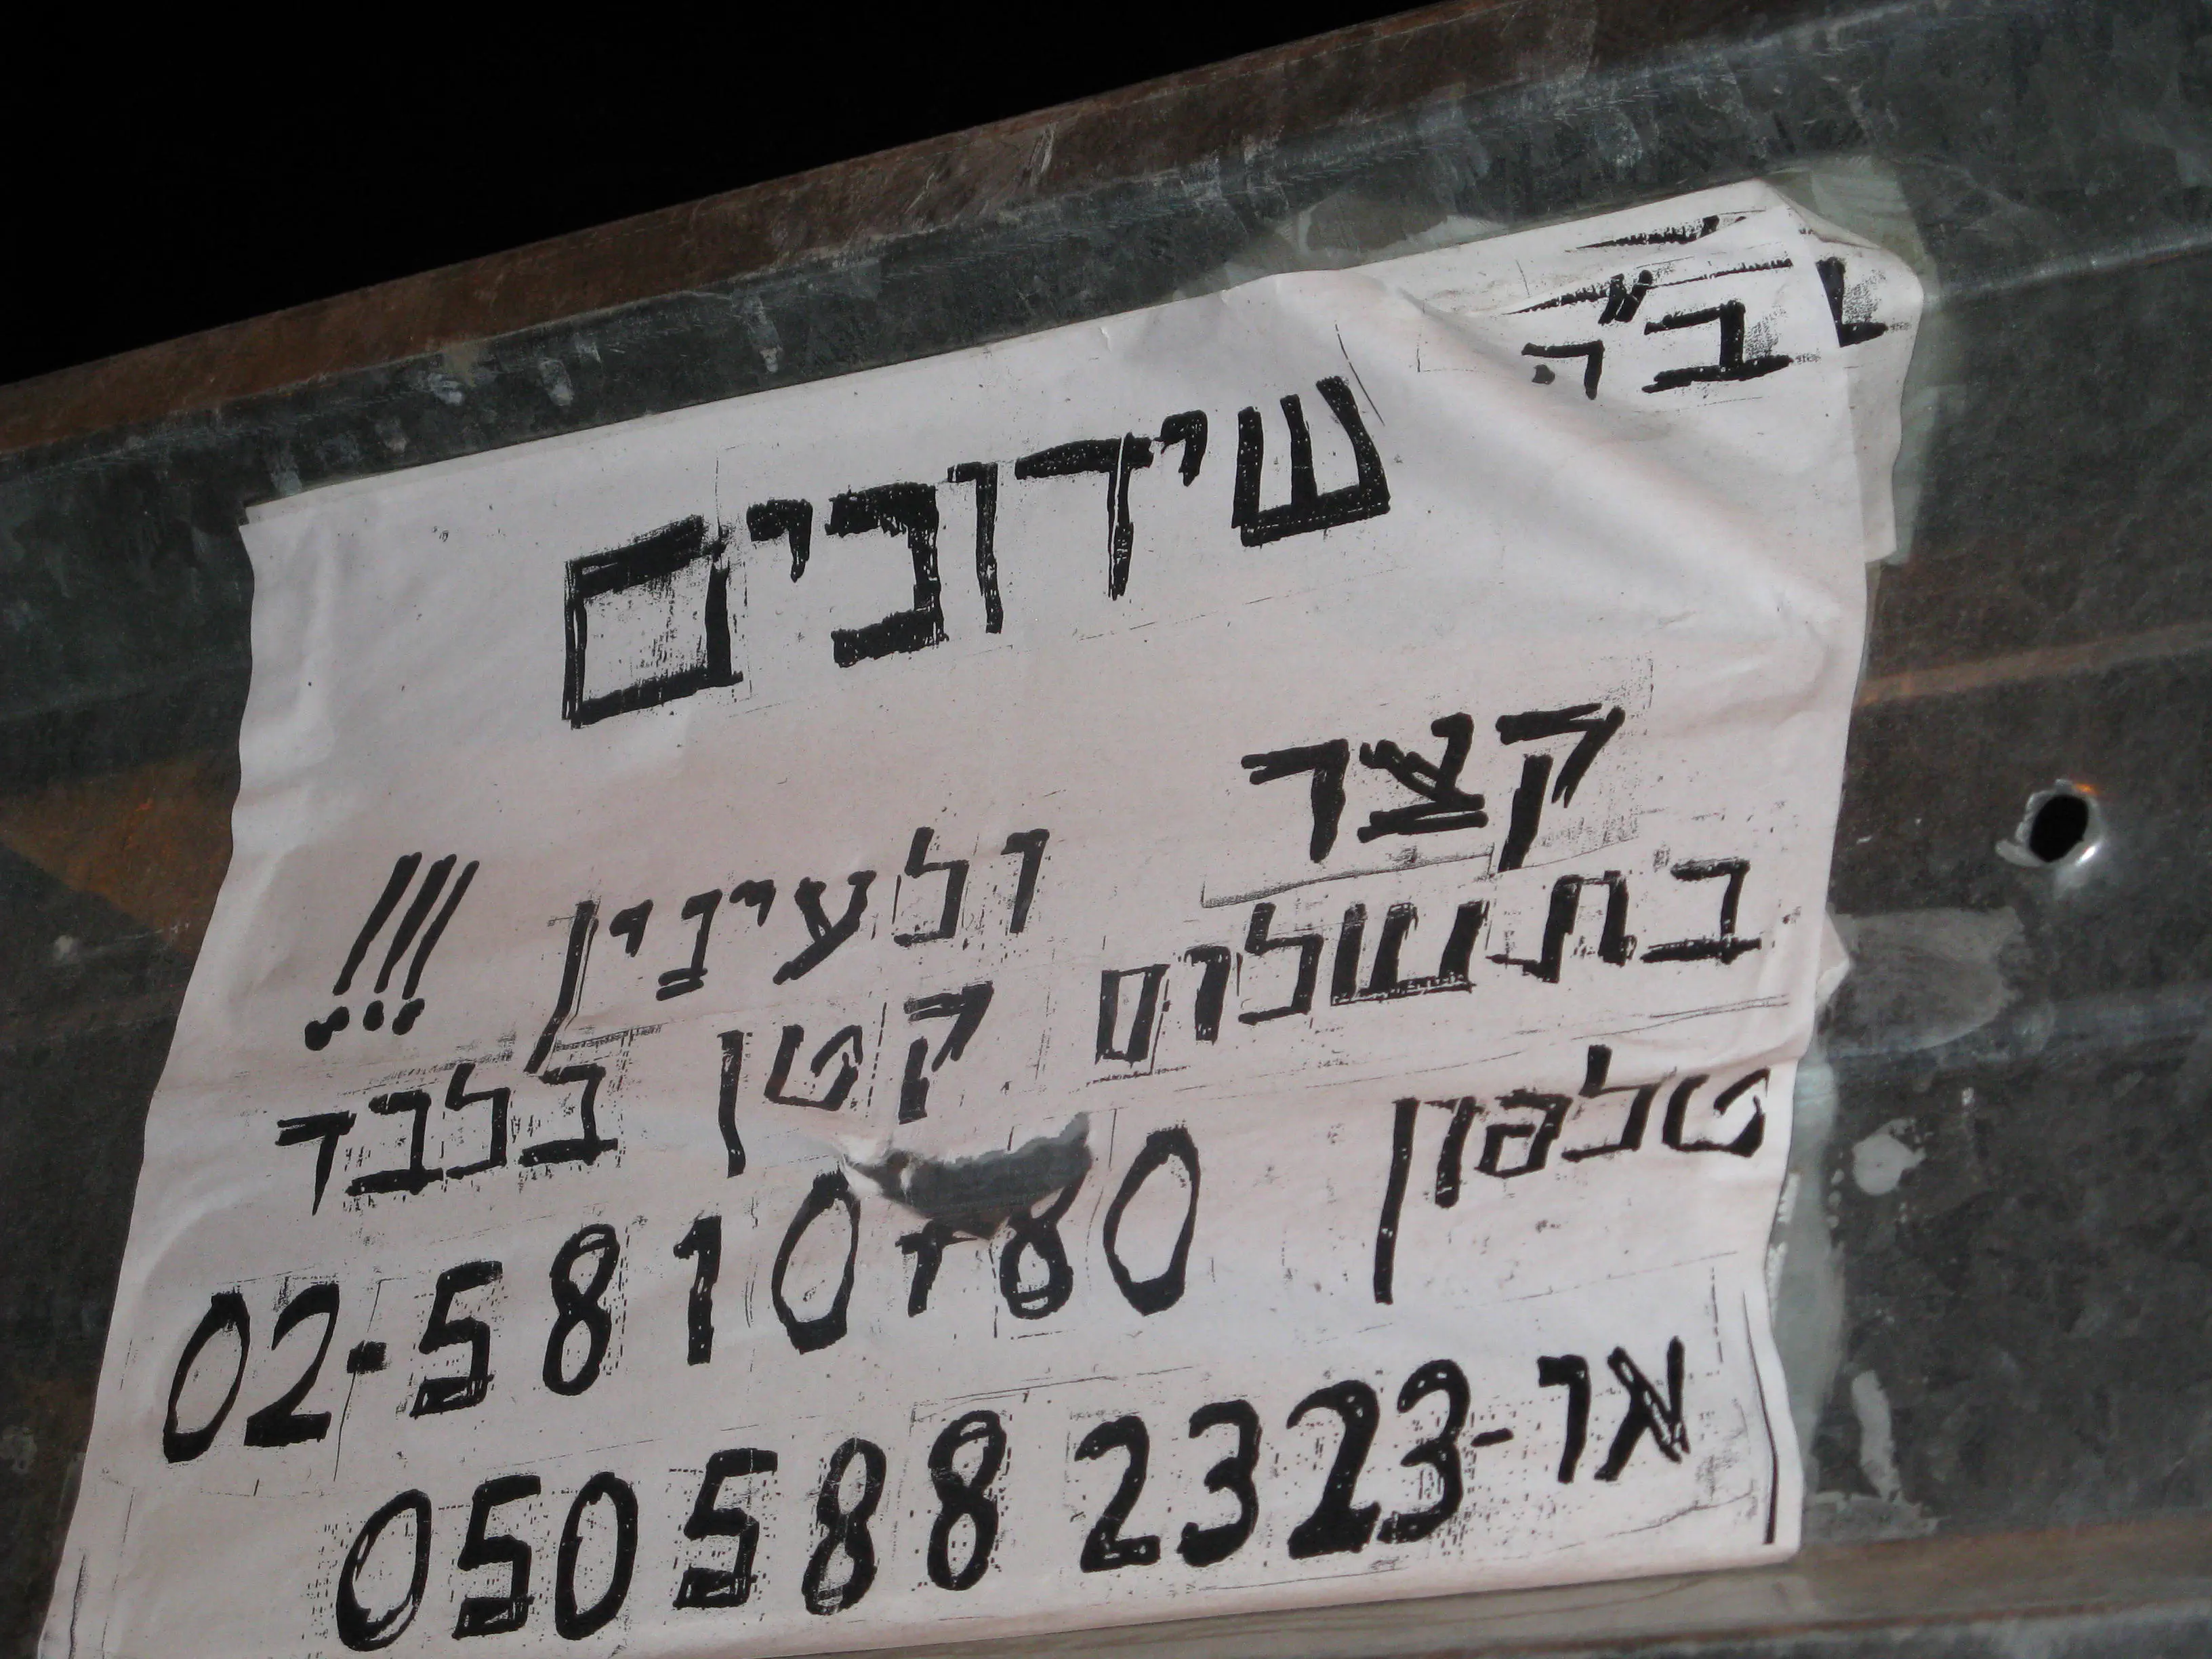 ב"ה
שידוכים
קצר ולעינין !!!
בתשלום קטן בלבד
טלפון 02-5810780
או- 050 588 2323